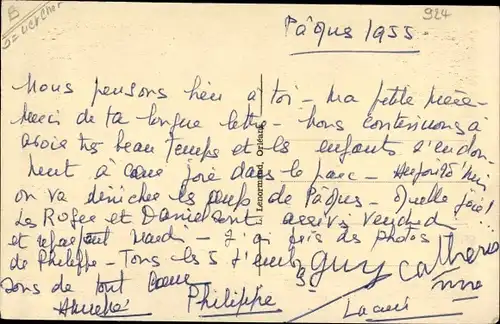 924
Pâques 1955.
Nous pensons bien à toi - Ma petite Mère -
Merci de ta longue lettre - Nous continuons à
avoir très beau temps et les enfants s'en don-
nent à cœur joie dans le parc - Aujourd'hui
on va dénicher les œufs de Pâques - quelle joie!...
Les Roger et Daniel sont arrivés vendredi
et repartent Mardi - J'ai pris des photos -
de Philippe - Tous les 5 t'embras-
sons de tout Cœur
guy Catherine
Philippe
L. Lenormand, Orléans